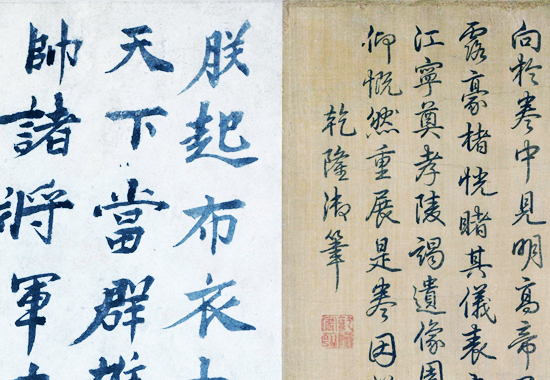 朕起布衣
天下當群
帥諸將軍
向於卷中見明高帝
露豪楮恍睹其儀表
江寧奠孝陵謁遺像周
仰慨然重展是卷因
乾隆御筆